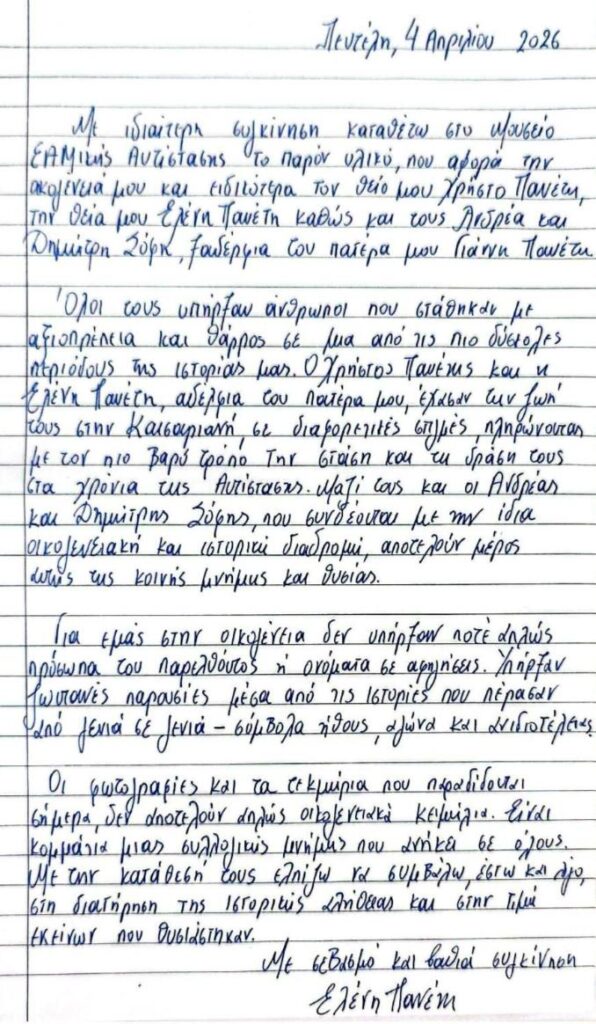 Πεντέλη, 4 Απριλίου 2026
Με ιδιαίτερη συγκίνηση καταθέτω στο Μουσείο
ΕΑΜικής Αντίστασης το παρόν υλικό, που αφορά την
οικογένειά μου και ειδικότερα τον θείο μου Χρήστο Πανέτη,
την θεία μου Ελένη Πανέτη καθώς και τους Ανδρέα και
Δημήτρη Ζόφη, ξαδέρφια του πατέρα μου Γιάννη Πανέτη.
Όλοι τους υπήρξαν άνθρωποι που στάθηκαν με
αξιοπρέπεια και θάρρος σε μια από τις πιο δύσκολες
περιόδους της ιστορίας μας. Ο Χρήστος Πανέτης και η
Ελένη Πανέτη, αδέλφια του πατέρα μου, έχασαν την ζωή
τους στην Καισαριανή, σε διαφορετικές στιγμές, πληρώνοντας
με τον πιο βαρύ τρόπο την στάση και τη δράση τους
στα χρόνια της Αντίστασης. Μαζί τους και οι Ανδρέας
και Δημήτρης Ζόφης, που συνδέονται με την ίδια
οικογενειακή και ιστορική διαδρομή, αποτελούν μέρος
αυτής της κοινής μνήμης και θυσίας.
Για εμάς στην οικογένεια δεν υπήρξαν ποτέ απλώς
πρόσωπα του παρελθόντος ή ονόματα σε αφηγήσεις. Υπήρξαν
ζωντανές παρουσίες μέσα από τις ιστορίες που πέρασαν
από γενιά σε γενιά – σύμβολα ήθους, αγώνα και ανιδιοτέλειας.
Οι φωτογραφίες και τα τεκμήρια που παραδίδονται
σήμερα, δεν αποτελούν απλώς οικογενειακά κειμήλια. Είναι
κομμάτια μιας συλλογικής μνήμης που ανήκει σε όλους.
Με την κατάθεσή τους ελπίζω να συμβάλω, έστω και λίγο,
στη διατήρηση της ιστορικής αλήθειας και στην τιμή
εκείνων που θυσιάστηκαν.
Με σεβασμό και βαθιά συγκίνηση
Ελένη Πανέτη